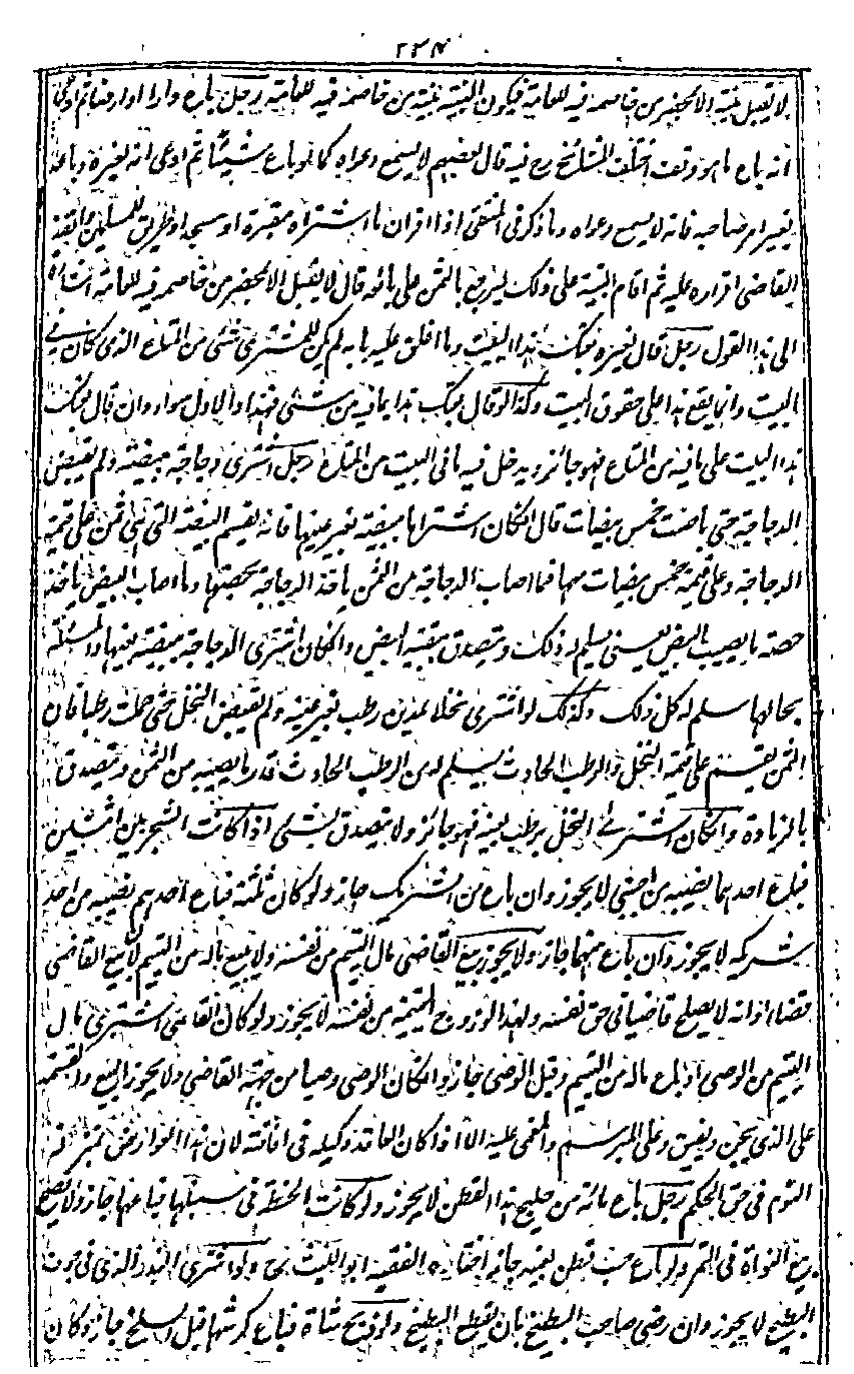 ٢٣٤
لا يقبل بينة الا بمحضر من خاصمه فيه للعامة فيكون البينة بينة من خاصمه فيه للعامة رجل باع دارا او ارضا ثم ادعى
انه باع ما هو وقف اختلف المشائخ رح فيه قال بعضهم لا يسمع دعواه كما لو باع شيئا ثم ادعى انه لغيره وباعه
بغير امر صاحبه فانه لا يسمع دعواه وما ذكر فى المنتقى اذا اقر ان ما اشتراه مقبرة او مسجد او طريق للمسلمين وانفذ
القاضى اقراره عليه ثم اقام البينة على ذلك ليرجع بالثمن على بائعه قال لا يقبل الا بمحضر من خاصمه فيه للعامة اشارة
الى هذا القول رجل قال لغيره بعتك هذا البيت وما اغلق عليه بابه لم يكن للمشترى شئ من المتاع الذى كان فى
البيت وانما يقع هذا على حقوق البيت وكذا لو قال بعتك هذا بما فيه من شئ فهذا والاول سواء وان قال بعتك
هذا البيت على ما فيه من المتاع فهو جائز ويدخل فيه ما فى البيت من المتاع رجل اشترى دجاجة ببيضة ولم يقبض
الدجاجة حتى باضت خمس بيضات قال ان كان اشتراها ببيضة بغير عينها فانه يقسم البيضة التى هى ثمن على قيمة
الدجاجة وعلى قيمة خمس بيضات منها فما اصاب الدجاجة من الثمن ياخذ الدجاجة بحصتها وما اصاب البيض ياخذ
حصته ما يصيب البيض يعنى يسلم له ذلك ويتصدق ببقية البيض وان كان اشترى الدجاجة ببيضة بعينها والمسئلة
بحالها سلم له كل ذلك وكذلك لو اشترى نخلا بمدين رطب بغير عينه ولم يقبض النخل حتى حملت رطبا فان
الثمن يقسم على قيمة النخل والرطب الحادث فيسلم له من الرطب الحادث قدر ما يصيبه من الثمن ويتصدق
بالزيادة وان كان اشترى النخل برطب بعينه فهو جائز ولا يتصدق بشئ اذا كانت الشجر بين اثنين
فباع احدهما نصيبه من اجنبى لا يجوز وان باع من الشريك جاز ولو كان ثلثة فباع احدهم نصيبه من احد
شريكيه لا يجوز وان باع منهما جاز ولا يجوز بيع القاضى مال اليتيم من نفسه ولا بيع ماله من اليتيم لان بيع القاضى
قضاء اذ انه لا يصلح قاضيا فى حق نفسه ولهذا لو زوج اليتيمة من نفسه لا يجوز ولو كان القاضى اشترى مال
اليتيم من الوصى او باع ماله من اليتيم وقبل الوصى جاز وان كان الوصى وصيا من جهة القاضى ولا يجوز البيع والقسمة
على الذى يجن ويفيق وعلى المبرسم والمغمى عليه الا اذا كان العاقد وكيله فى افاقته لان هذا العوارض بمنزلة
النوم فى حق الحكم رجل باع مائة من حليج هذا القطن لا يجوز ولو كانت الحنطة فى سنبلها فباعها جاز ولا يصح
بيع النواة فى التمر ولو باع حب قطن بعينه جاز اختاره الفقيه ابو الليث رح ولو اشترى البذر الذى فى جوف
البطيخ لا يجوز وان رضى صاحب البطيخ بان يقطع البطيخ ولو ذبح شاة فباع كرشها قبل السلخ جاز وكان